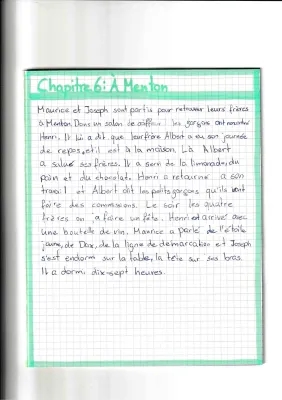 Chapitre 6: À Menton
Maurice et Joseph sont partis pour retrouver leurs frères
à Menton. Dans un salon de coiffeur les garçons ont rencontré
Henri. Il lui a dit que leur frère Albert a eu son journée
de repos, et il est à la maison. Là Albert
a salué ses frères. Il a servi de la limonade, du
pain et du chocolat. Henri a retourné à son
travail et Albert dit les petits garçons qu'ils vont
faire des commissions. Le soir les quatre
frères on faire un fête. Henri et arrivé avec
une bouteille de vin. Maurice a parlé de l'étoile
jaune, de Dax, de la ligne de démarcation et Joseph
s'est endormi sur la table, la tête sur ses bras.
Il a dormi dix-sept heures.